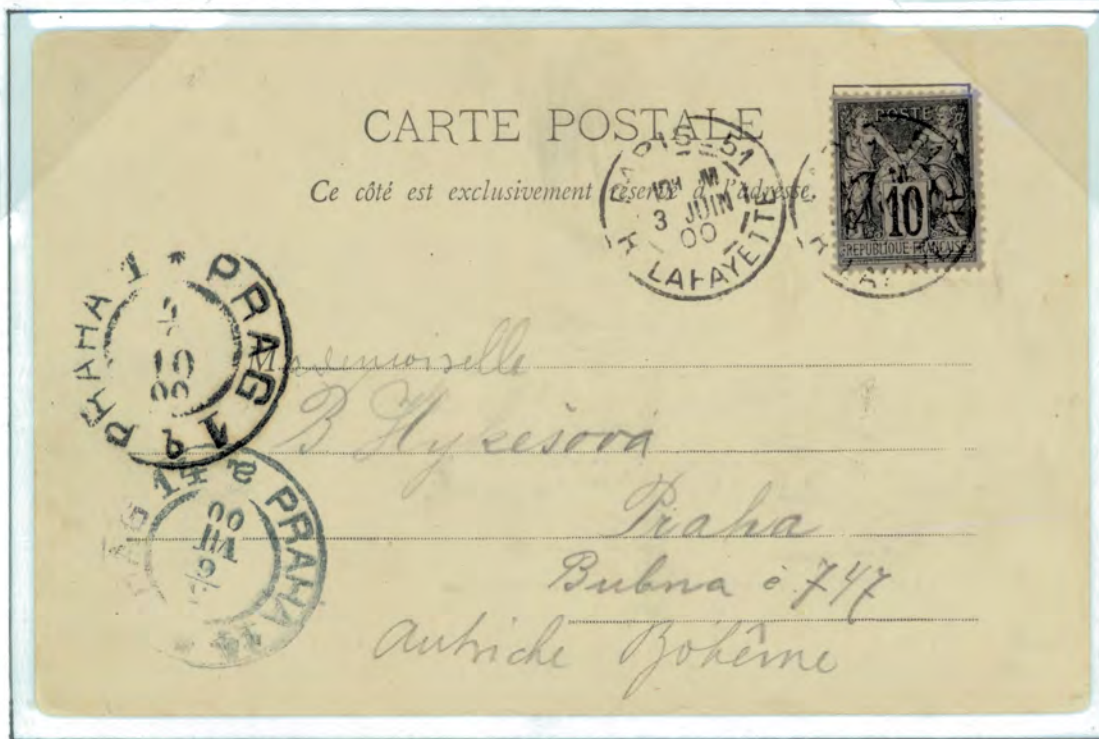 CARTE POSTALE
Ce côté est exclusivement réservé à l'adresse.
PARIS - 51
M
3 JUIN
00
R. LAFAYETTE
POSTE
10
REPUBLIQUE FRANÇAISE
PRAG 1
PRAHA 1
00
Mademoiselle
B Hykešova
Praha
Bubna č 747
Autriche Bohême
PRAHA
00